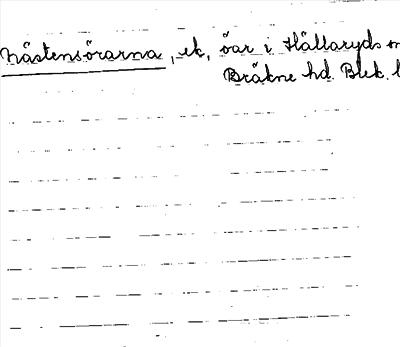 Nästensörarna, ek, öar i Hällaryds
Bräkne hd. Blek. l